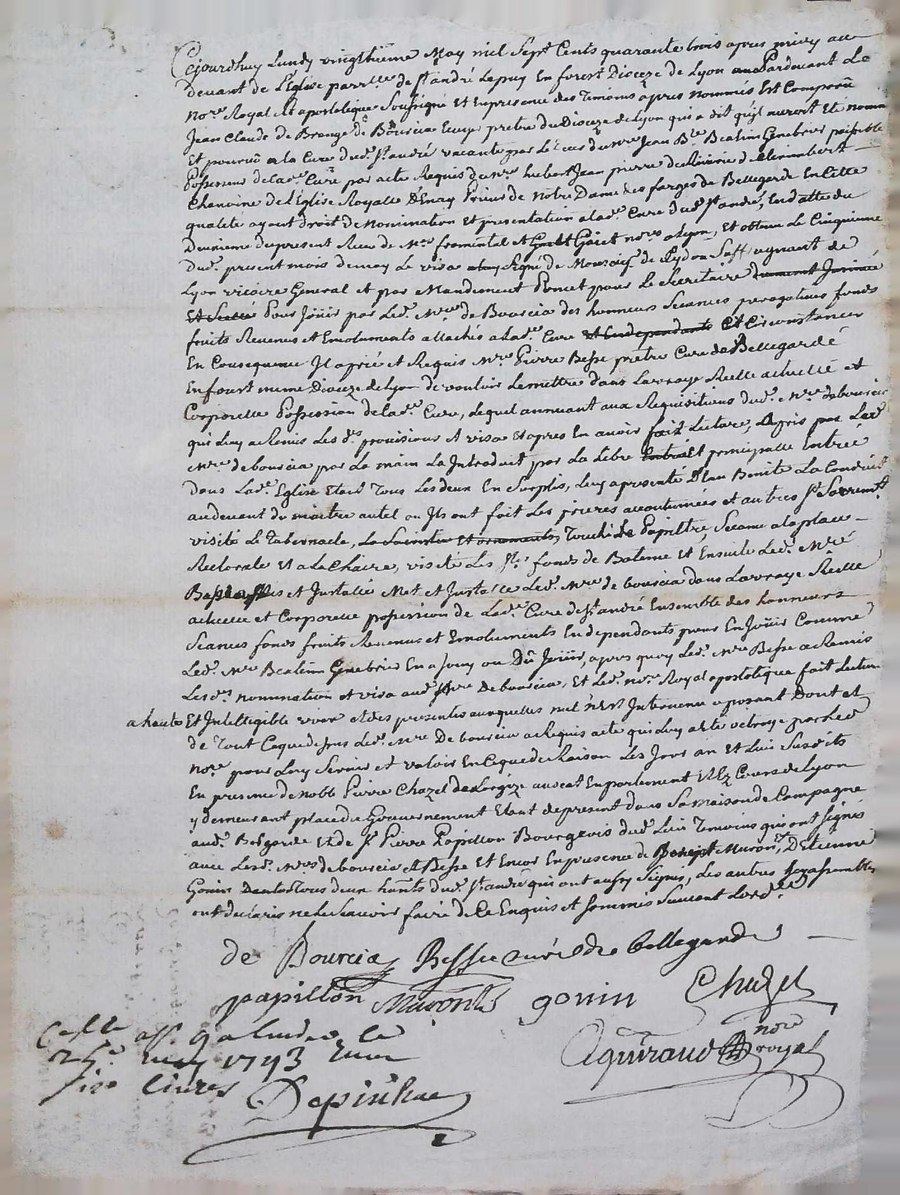 Cejourdhuy Lundy vingtième May mil Sept Cents quarante trois apres midy au
devant de L'Eglise parrlle de St andré Lepuy En forest Dioceze de Lyon Pardevant Le
nore Royal Et apostolique Soussigné Et En presence des Temoins apres nommés Est Comparu
Jean Claude de Bourcia Ecuyer pretre du Dioceze de Lyon qui a dit qu'il auroit Eté nommé
Et pourvu a la Cure dud. St andré vacante par le deces de Mre Jean Bte Genebrier paisible
Possesseur de lad. Cure par acte Requis de Mre hubert Jean pierre de
Chanoine de L'Eglise Royalle D'Enay Prieur de Notre Dame des farges de Bellegarde En Cette
qualité ayant droit de Nomination Et presentation a lad. Cure dud. St andré, En datte du
Deuxieme du present Receu de Mre fromental Et Guiet nores a Lyon, Et obtenu le Cinquieme
dud. present mois de may Le visa Signé de Suffragnant de
Lyon vicaire General Et par Mandement Poncet pour Le Secretaire
Et Scellé Pour Joüir par Led. Mre de Bourcia des honneurs Seances prerogatives fonds
fruits Revenus et Emoluments attachés a lad. Cure Et En dependants Et Circonstances
En Consequence Il a prié et Requis Mre Pierre Besse prêtre Curé de Bellegarde
En fourst meme Dioceze de Lyon de vouloir Le mettre dans La vraye Réelle actuelle et
Corporelle Possession de lad. Cure, Lequel annuant aux Requisitions dud. Mre de bourcia
qui Luy a Remis Les ds provisions Et visa Et apres En avoir fait Lecture, a pris par Led.
Mre de bourcia par La main La Introduit par La Libre Entrée principalle Entrée
dans Lad. Eglise Etant Tous Les deux En Surplis, Luy a presenté D'Eau Benite La Conduit
au devant du maitre autel ou Ils ont fait Les prieres accoutumées et au tres St Sacrement
visité Le Tabernacle, Touché Le Pupiltre, Seance a la place
Rectorale Et a la Chaire, visité Les Sts fonds de Bateme Et Ensuite Led. Mre
Besse a mis et Installé Met et Installe Led. Mre de bourcia dans La vraye Reelle
actuelle et Corporelle possession de Lad. Cure de St andré Ensemble des honneurs
Seances fonds fruits Revenus et Emoluments En dependants pour En Joüir Comme
Led. Mre Genebrier En a Jouy ou Dû Joüir, apres quoy Led. Mre Besse a Remis
Les ds nomination et visa aud. Mre De bourcia, Et Led. nore Royal apostolique fait Lecture
a haute Et Intelligible voix et des presentes auxquelles nul n'est Intervenu oposant Dont et
de Tout Ce que dessus Led. Mre De bourcia a Requis acte qui Luy a Eté octroyé par Led.
nore pour Luy Servir et valoir En Ce que de Raison Les Jour an Et Lieu Susdits
En presence de Noble Pierre Chazel avocat En parlement Et Ez Cours de Lyon
y demeurant place du Gouvernement Etant de present dans Sa maison de Campagne
aud. Belgarde Et de Sr Pierre Papillon Bourgeois dud. Lieu Temoins qui ont Signés
avec Led. Mres de bourcia et Besse Et Encor En presence de Muron, D'Etienne
Gonin dud. St andré qui ont aussy Signés, Les autres
ont declaré ne Le Scavoir faire de Ce Enquis et Sommés Suivant Lord.ce
de Bourcia Besse curé de bellegarde
papillon Muron gonin Chazel
Aguiraud nore
royal
le
may 1743
six livres